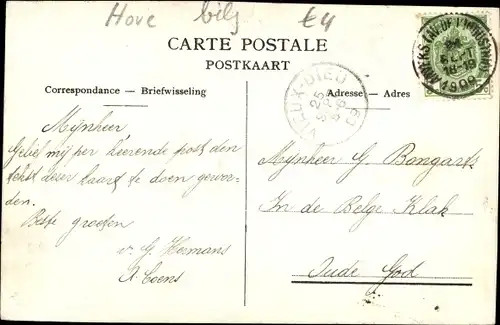 Hove bilz €4
CARTE POSTALE
POSTKAART
Correspondance — Briefwisseling
Adresse — Adres
VIEUX-DIEU
25
09
1909
Mijnheer
Gelief mij per keerende post den
tekst dezer kaart te doen gewor-
den.
Beste groeten
v. G. Hermans
A. Coens
Mijnheer G. Bongarts
In de Belge Klak
Oude God